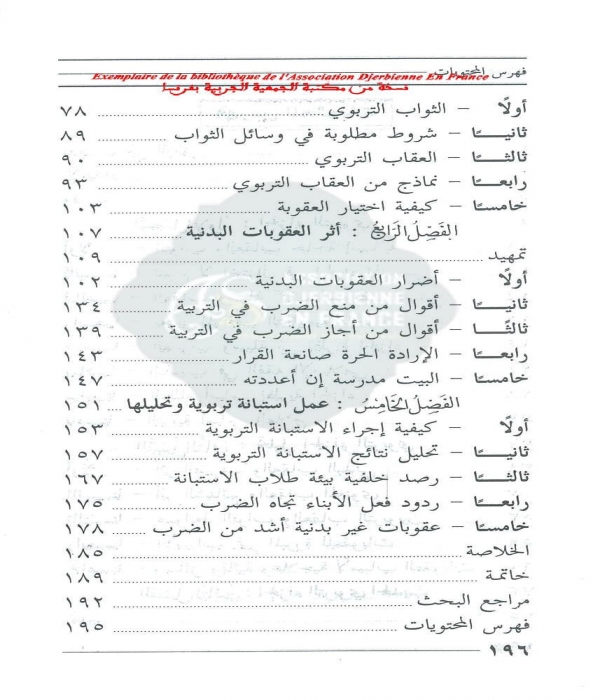 فهرس المحتويات
Exemplaire de la bibliothèque de l'Association Djerbienne En France
نسخة من مكتبة الجمعية الجربية بفرنسا
أولًا – الثواب التربوي ٧٨
ثانيـًا – شروط مطلوبة في وسائل الثواب ٨٩
ثالثـًا – العقاب التربوي ٩٠
رابعـًا – نماذج من العقاب التربوي ٩٣
خامسـًا – كيفية اختيار العقوبة ١٠٣
الفصل الرابع : أثر العقوبات البدنية ١٠٧
تمهيد ١٠٩
أولًا – أضرار العقوبات البدنية ١٠٢
ثانيـًا – أقوال من منع الضرب في التربية ١٣٤
ثالثـًا – أقوال من أجاز الضرب في التربية ١٣٩
رابعـًا – الإرادة الحرة صانعة القرار ١٤٣
خامسـًا – البيت مدرسة إن أعددته ١٤٧
الفصل الخامس : عمل استبانة تربوية وتحليلها ١٥١
أولًا – كيفية إجراء الاستبانة التربوية ١٥٣
ثانيـًا – تحليل نتائج الاستبانة التربوية ١٥٧
ثالثـًا – رصد خلفية بيئة طلاب الاستبانة ١٦٧
رابعـًا – ردود فعل الأبناء تجاه الضرب ١٧٥
خامسـًا – عقوبات غير بدنية أشد من الضرب ١٧٨
الخلاصة ١٨٥
خاتمة ١٨٩
مراجع البحث ١٩٢
فهرس المحتويات ١٩٥
١٩٦